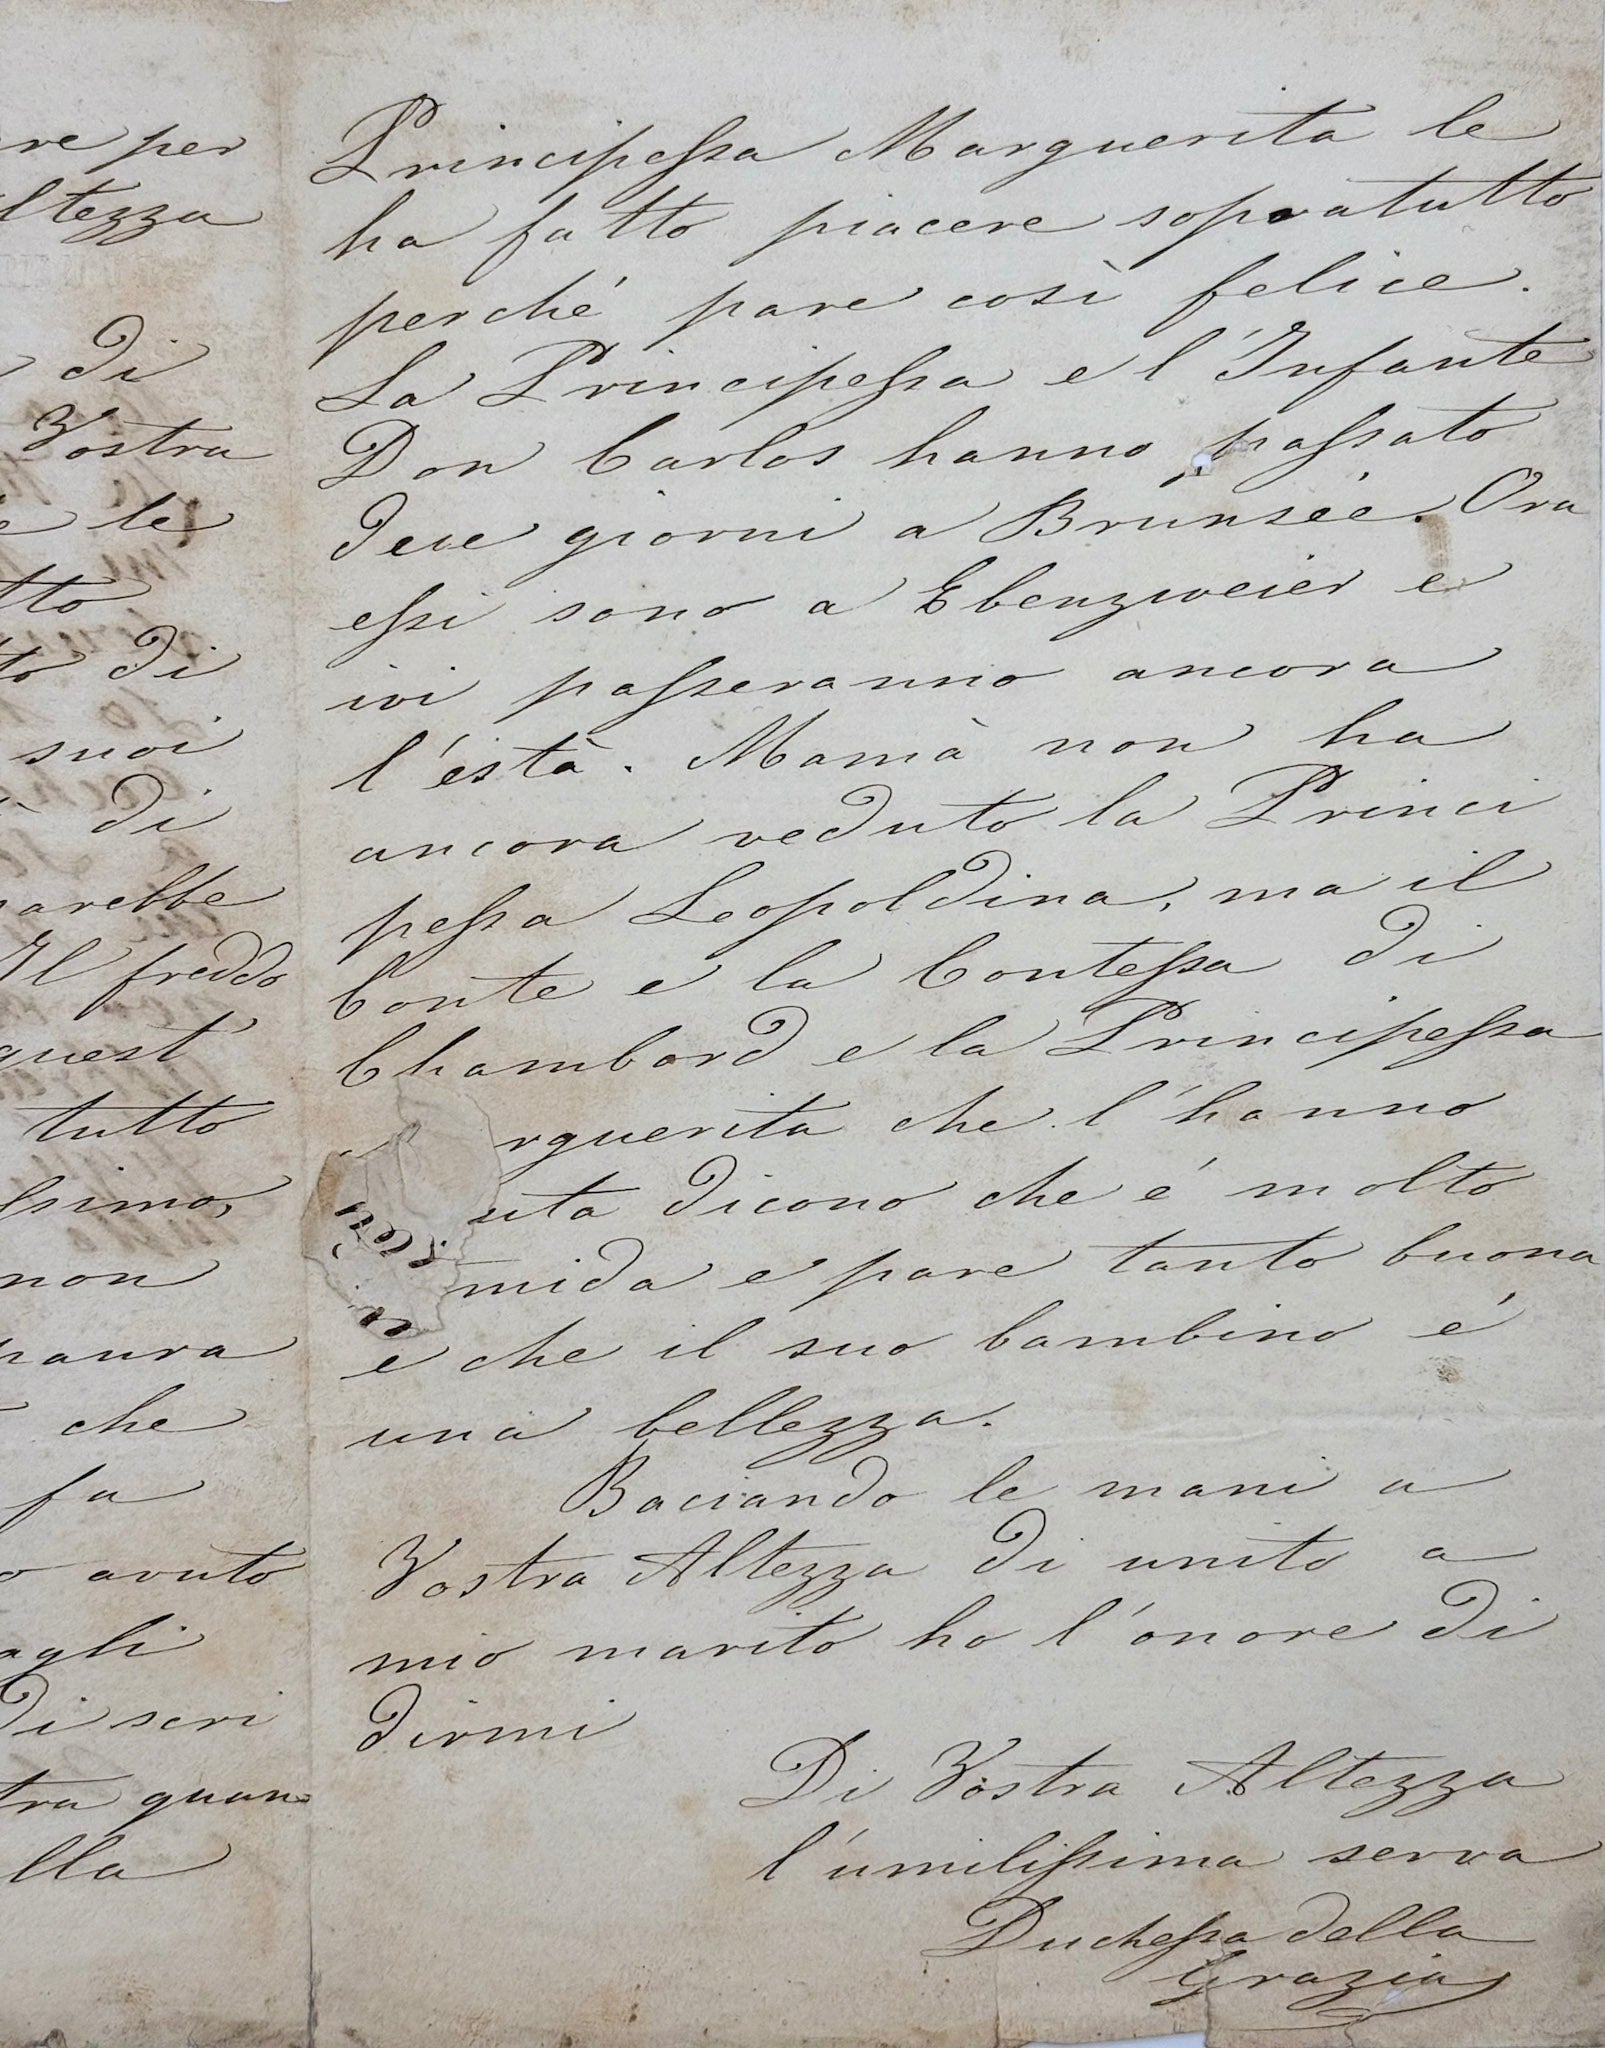 re per
ltezza
di
Vostra
e le
tto
to di
suoi
di
arebbe
Il freddo
quest
tutto
ssimo,
non
paura
che
fa
o avuto
agli
di scri
tra quan
lla
Principessa Marguerita le
ha fatto piacere sopratutto
perché pare così felice.
La Principessa e l'Infante
Don Carlos hanno passato
dece giorni a Brunsée. Ora
essi sono a Ebenzweier e
ivi passeranno ancora
l'està. Mamà non ha
ancora veduto la Princi
pessa Leopoldina, ma il
Conte e la Contessa di
Chambord e la Principessa
rguerita che l'hanno
uta dicono che é molto
mida e pare tanto buona
e che il suo bambino é
una bellezza.
Baciando le mani a
Vostra Altezza di unito a
mio marito ho l'onore di
dirmi
Di Vostra Altezza
l'umilissima serva
Duchessa della
Grazia